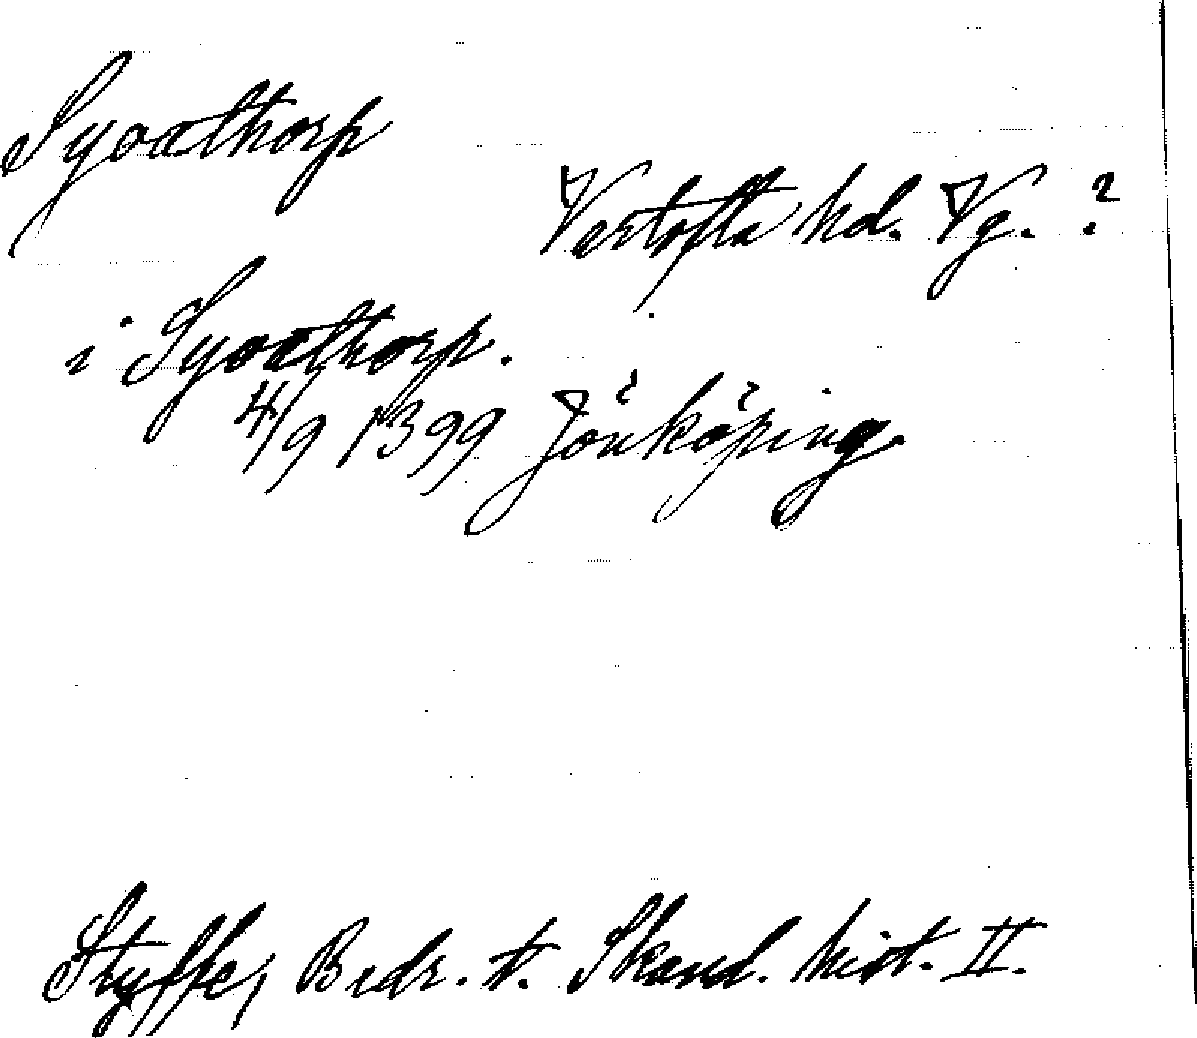 Syoathorp
Vartofta hd. Vg. ?
i Syoathorp.
4/9 1399 Jönköping.
Styffe, Bidr. t. Skand. hist. II.